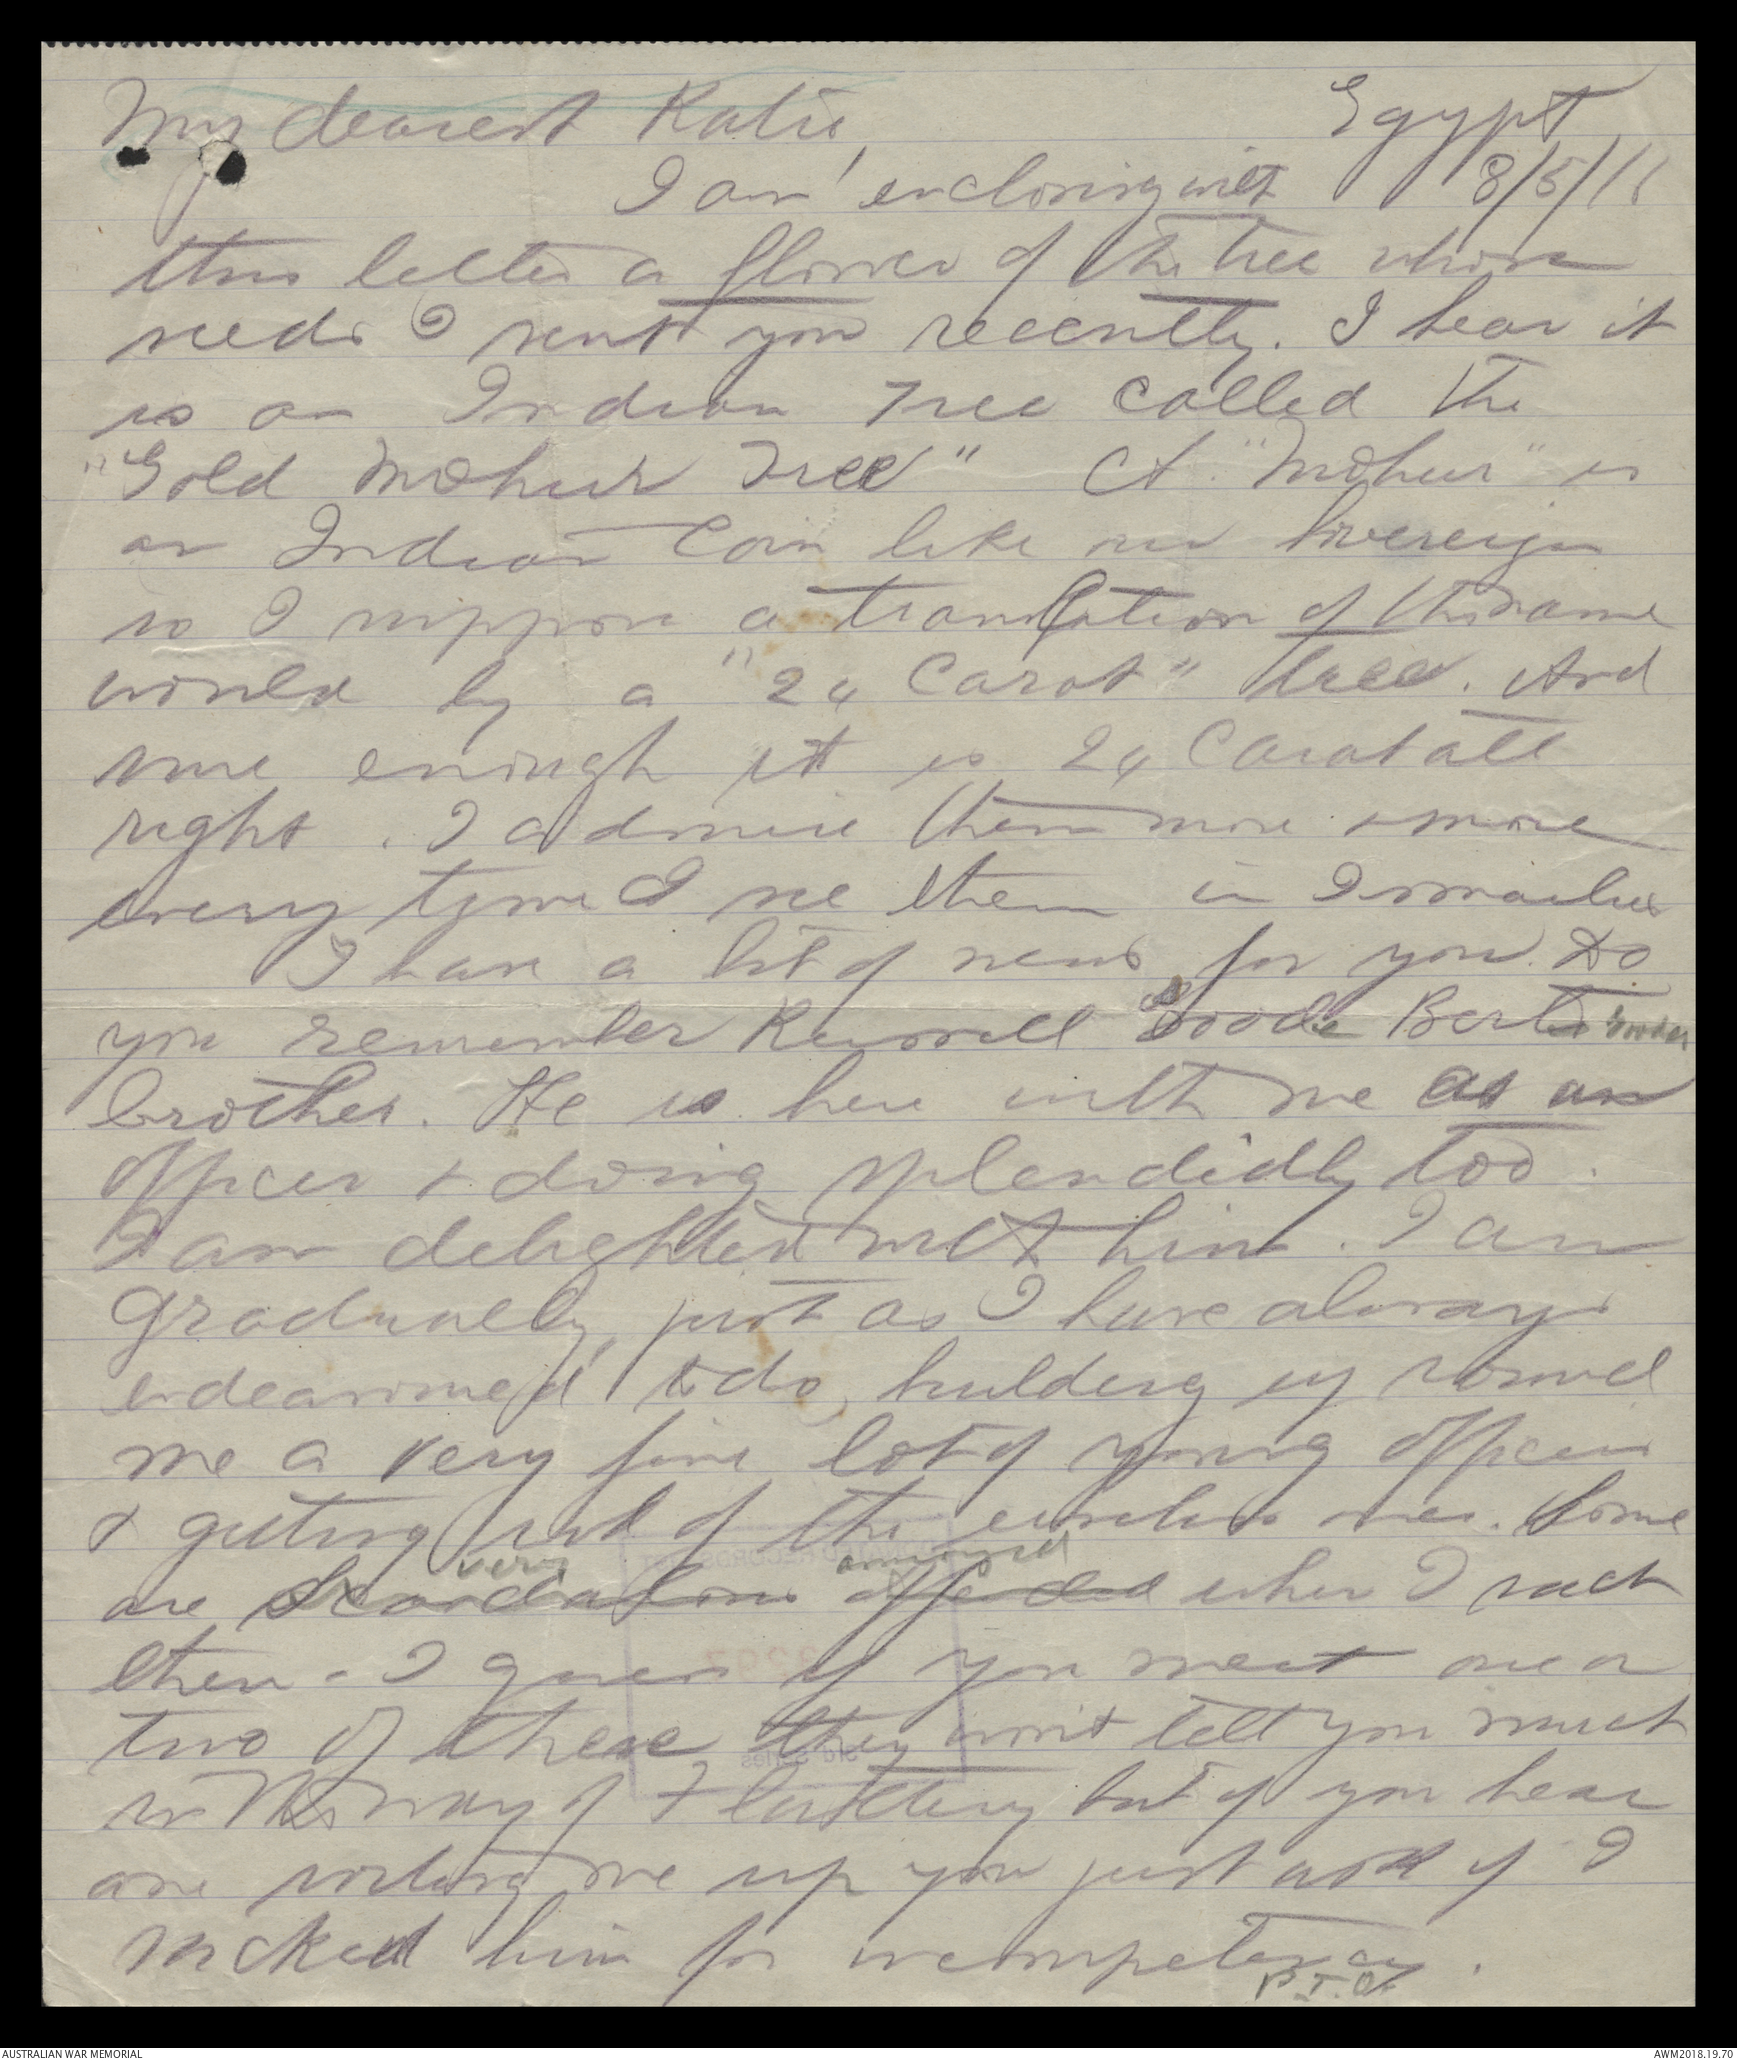 My dearest Katie,
Egypt
8/5/16
I am enclosing with
this letter a flower of the tree whose
seeds I sent you recently. I hear it
is an Indian Tree called the
"Gold Mohur Tree" A "Mohur" is
an Indian Coin like our Sovereign
so I suppose a translation of the name
would by a "24 Carat" tree. And
sure enough it is 24 Carat all
right. I admire them more & more
every tyme I see them in Ismailia
I have a bit of news for you. Do
you remember Russell Goode Berts Goodes
brother. He is here with me as an
officer & doing splendidly too.
I am delighted with him. I am
gradually, just as I have always
endeavoured to do, building up round
me a very fine lot of young officers
& getting rid of the useless ones. Some
very annoyed
are scandalous offended when I sack
them - I guess if you meet one or
two of these they won't tell you much
in the way of Flattery but if you hear
one roasting me up you just ask if I
sacked him for incompetency.
P.T.O.
3297
3rd series
AUSTRALIAN WAR MEMORIAL
AWM2018.19.70